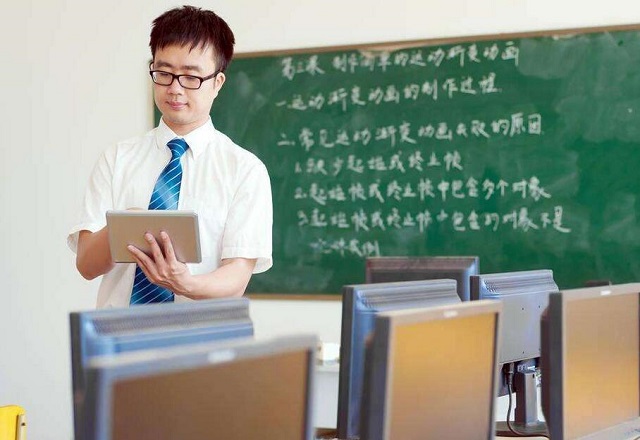 第三课 制作简单的运动渐变动画
一.运动渐变动画的制作过程
二.常见运动渐变动画失败的原因
1.缺少起始或终止帧
2.起始帧或终止帧中包含多个对象
3.起始帧或终止帧中包含的对象不是